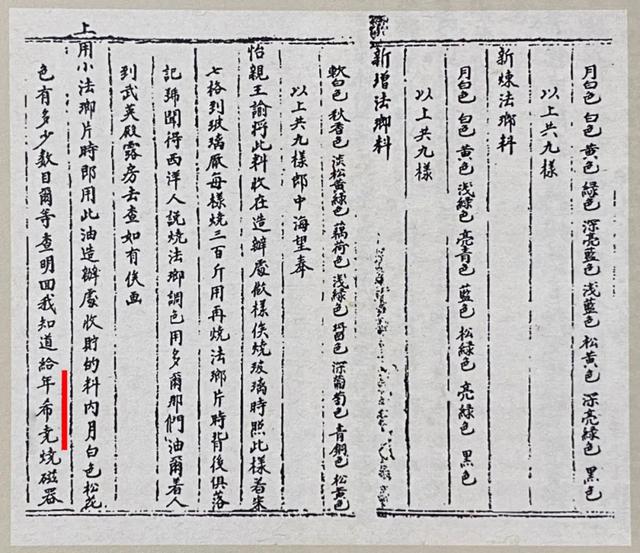 月白色 白色 黄色 綠色 深亮藍色 浅藍色 松黄色 深亮綠色 黑色
以上共九樣
新煉法瑯料
月白色 白色 黄色 浅綠色 亮青色 藍色 松綠色 亮綠色 黑色
以上共九樣
新增法瑯料
軟白色 秋香色 淡松黄綠色 藕荷色 浅綠色 醬色 深葡萄色 青銅色 松黄色
以上共九樣郎中海望奉
怡親王諭將此料收在造辦處做樣俟燒玻璃時照此樣着宋
七格到玻璃厰每樣燒三百斤用再燒法瑯片時背後俱落
記號聞得西洋人說燒法瑯調色用多爾那們油爾着人
到武英殿露房去查如有俟画
上用小法瑯片時即用此油造辦處收貯的料内月白色松花
色有多少數目爾等查明回我知道給年希尭燒磁器